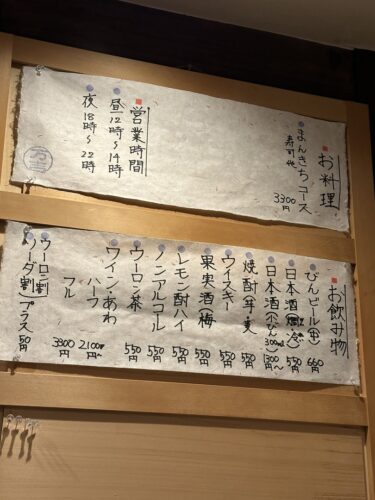 お料理
まんきちコース
寿司 他
3300円
営業時間
昼 12時〜14時
夜 18時〜22時
お飲み物
びんビール(中) 660円
日本酒 550円
日本酒 300ml 1300円〜
焼酎 芋・麦 550
ウイスキー 550
果実酒(梅) 550
レモン酎ハイ 550
ノンアルコール 550
ウーロン茶 550円
ワイン・あわ
ハーフ 2100円〜
フル 3300円
ウーロン割
ソーダ割 プラス50円